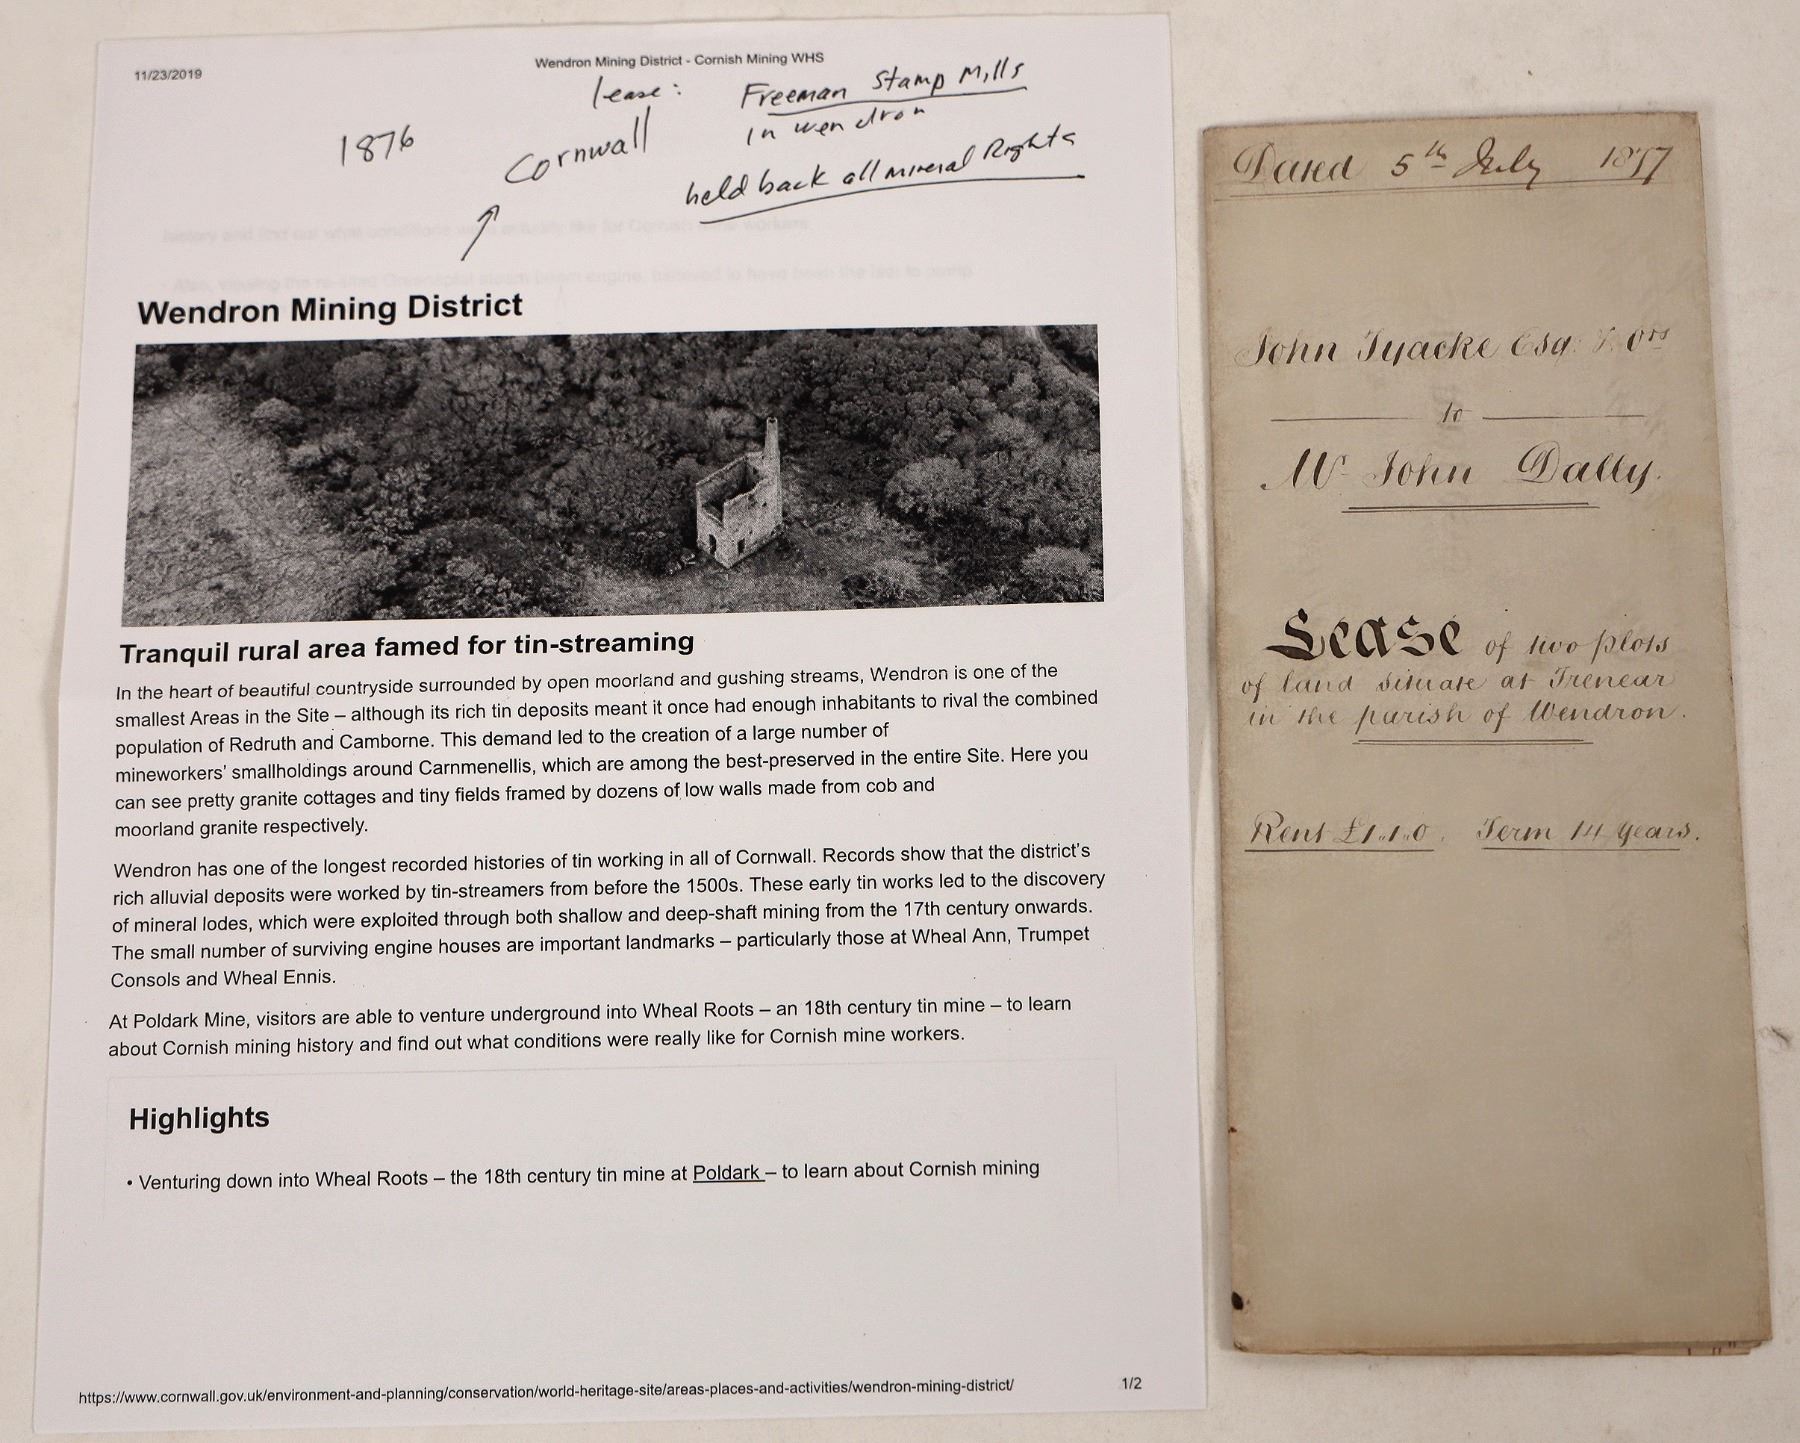 11/23/2019
Wendron Mining District - Cornish Mining WHS
lease:
Freeman Stamp Mills
in wendron
1876
Cornwall
held back all mineral Rights
Wendron Mining District
Tranquil rural area famed for tin-streaming
In the heart of beautiful countryside surrounded by open moorland and gushing streams, Wendron is one of the
smallest Areas in the Site – although its rich tin deposits meant it once had enough inhabitants to rival the combined
population of Redruth and Camborne. This demand led to the creation of a large number of
mineworkers' smallholdings around Carnmenellis, which are among the best-preserved in the entire Site. Here you
can see pretty granite cottages and tiny fields framed by dozens of low walls made from cob and
moorland granite respectively.
Wendron has one of the longest recorded histories of tin working in all of Cornwall. Records show that the district's
rich alluvial deposits were worked by tin-streamers from before the 1500s. These early tin works led to the discovery
of mineral lodes, which were exploited through both shallow and deep-shaft mining from the 17th century onwards.
The small number of surviving engine houses are important landmarks – particularly those at Wheal Ann, Trumpet
Consols and Wheal Ennis.
At Poldark Mine, visitors are able to venture underground into Wheal Roots – an 18th century tin mine – to learn
about Cornish mining history and find out what conditions were really like for Cornish mine workers.
Highlights
• Venturing down into Wheal Roots – the 18th century tin mine at Poldark – to learn about Cornish mining
https://www.cornwall.gov.uk/environment-and-planning/conservation/world-heritage-site/areas-places-and-activities/wendron-mining-district/
1/2
Dated 5th July
John Tyacke Esq. & Ors
to
Mr John Dally.
Lease of two plots
of land situate at Trenear
in the parish of Wendron.
Rent £1.1.0. Term 14 years.